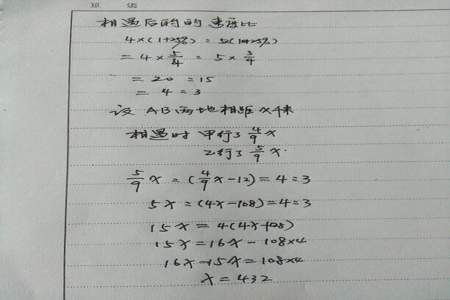 相遇后的的速度比
4×(1+25%)=5(1-25%)
=4×5/4=5×3/4
=20=15
=4=3
设AB两地相距X千米
相遇时 甲行了4/9X
乙行了5/9X.
5/9X=(4/9X-12)=4=3
5X=(4X-108)=4=3
15X=4(4X-108)
15X=16X-108×4
16X-15X=108×4
X=432